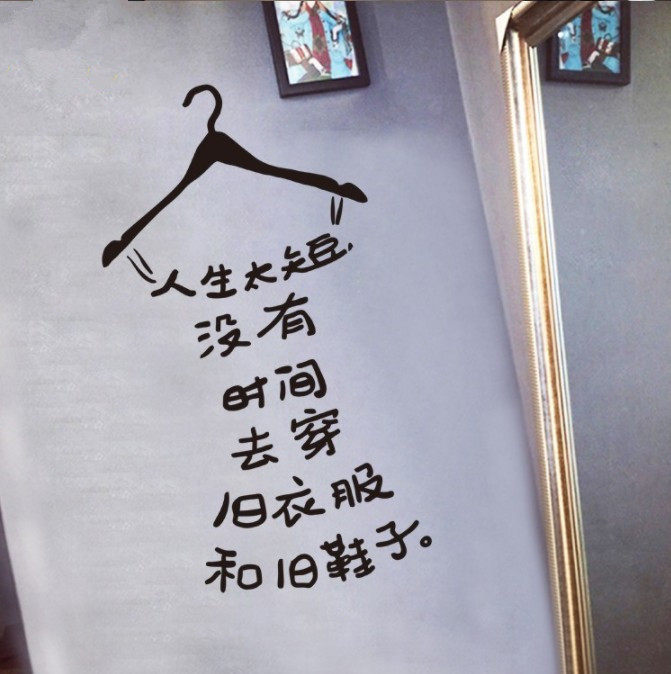 人生太短,
没有
时间
去穿
旧衣服
和旧鞋子。